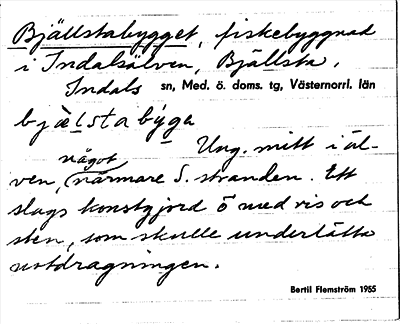 Bjällstabygget, fiskebyggnad
i Indalsälven, Bjällsta,
Indals sn, Med. ö. doms. tg, Västernorrl. län
bjälsta býge
Ung. mitt i äl-
något
ven, närmare S. stranden. Ett
slags konstgjord ö med ris och
sten, som skulle underlätta
notdragningen.
Bertil Flemström 1955